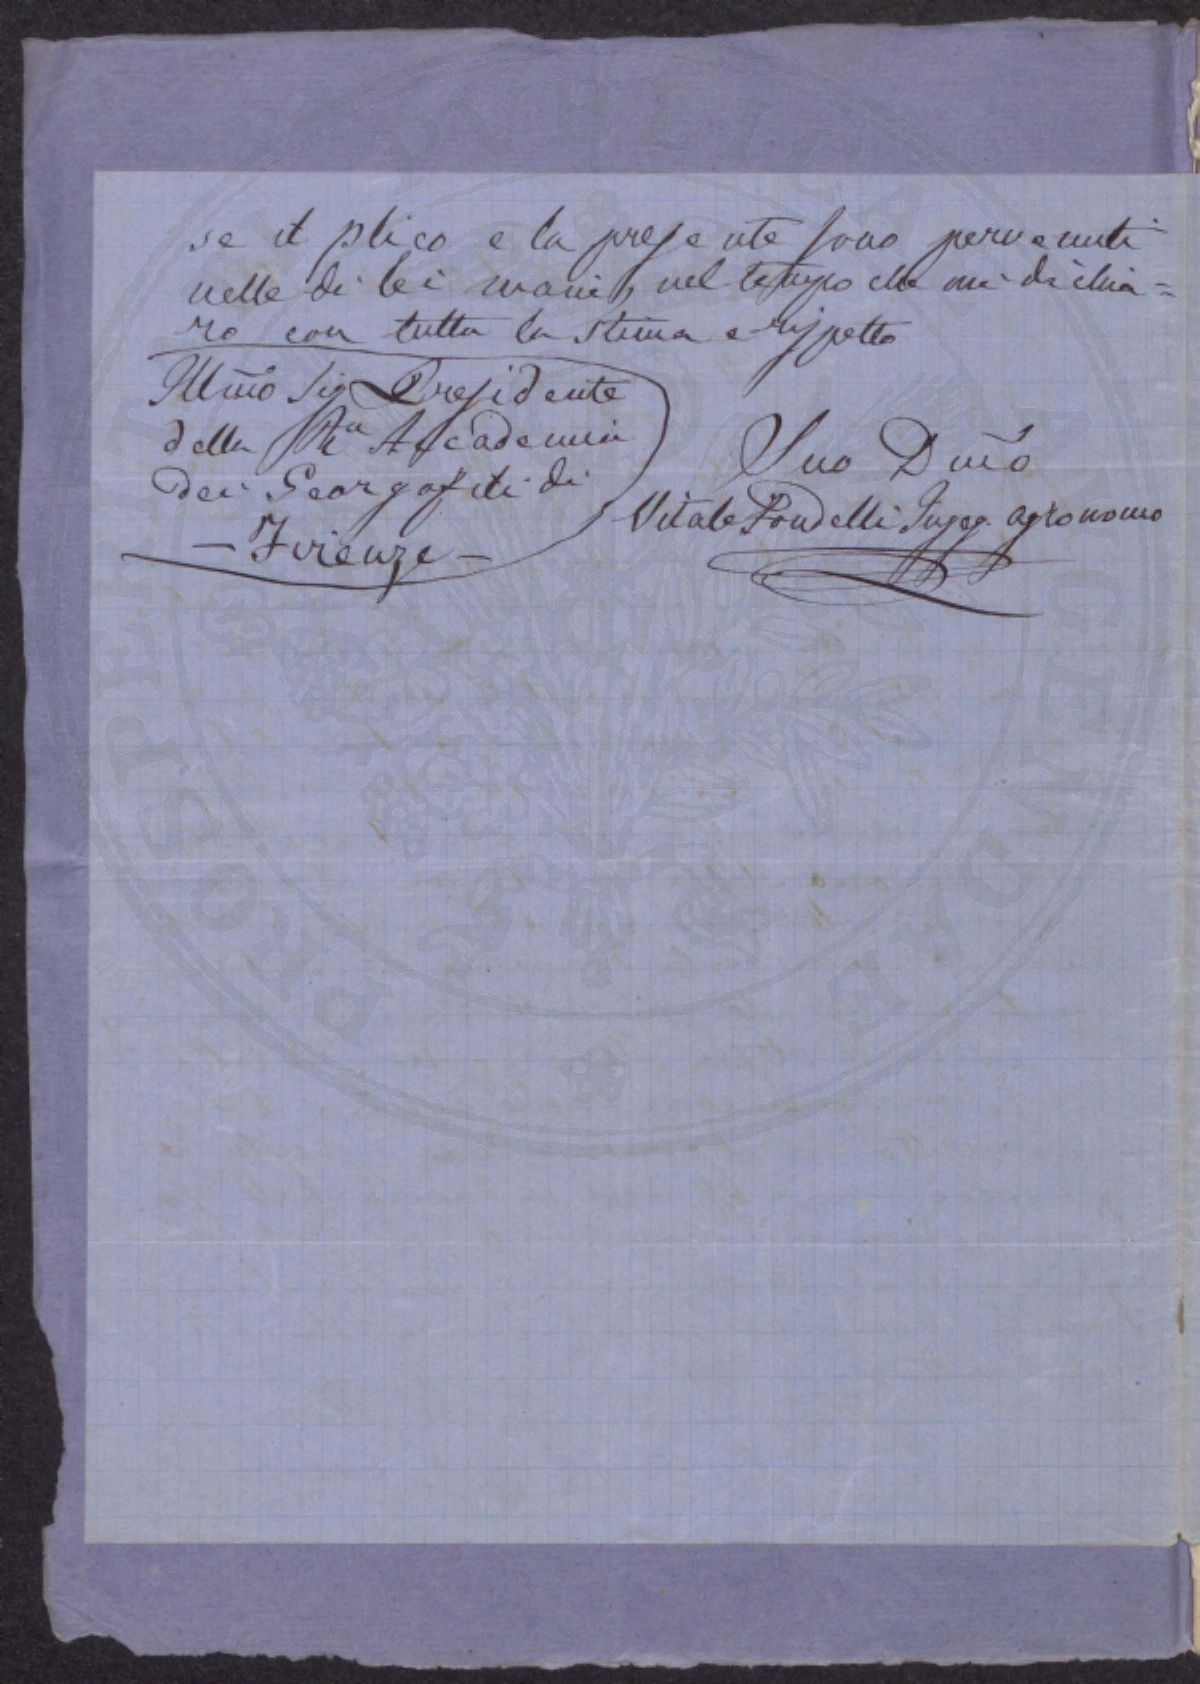 se il plico e la presente sono pervenuti
nelle di lei mani, nel tempo che mi dichia=
ro con tutta la stima e rispetto
Illmo Sig Presidente
della Ra Accademia
dei Georgofili di
— Firenze —
Suo Dmo
Vitale Pondelli Ingeg. agronomo
PROSPERITATI PVBLICAE AVGENDAE